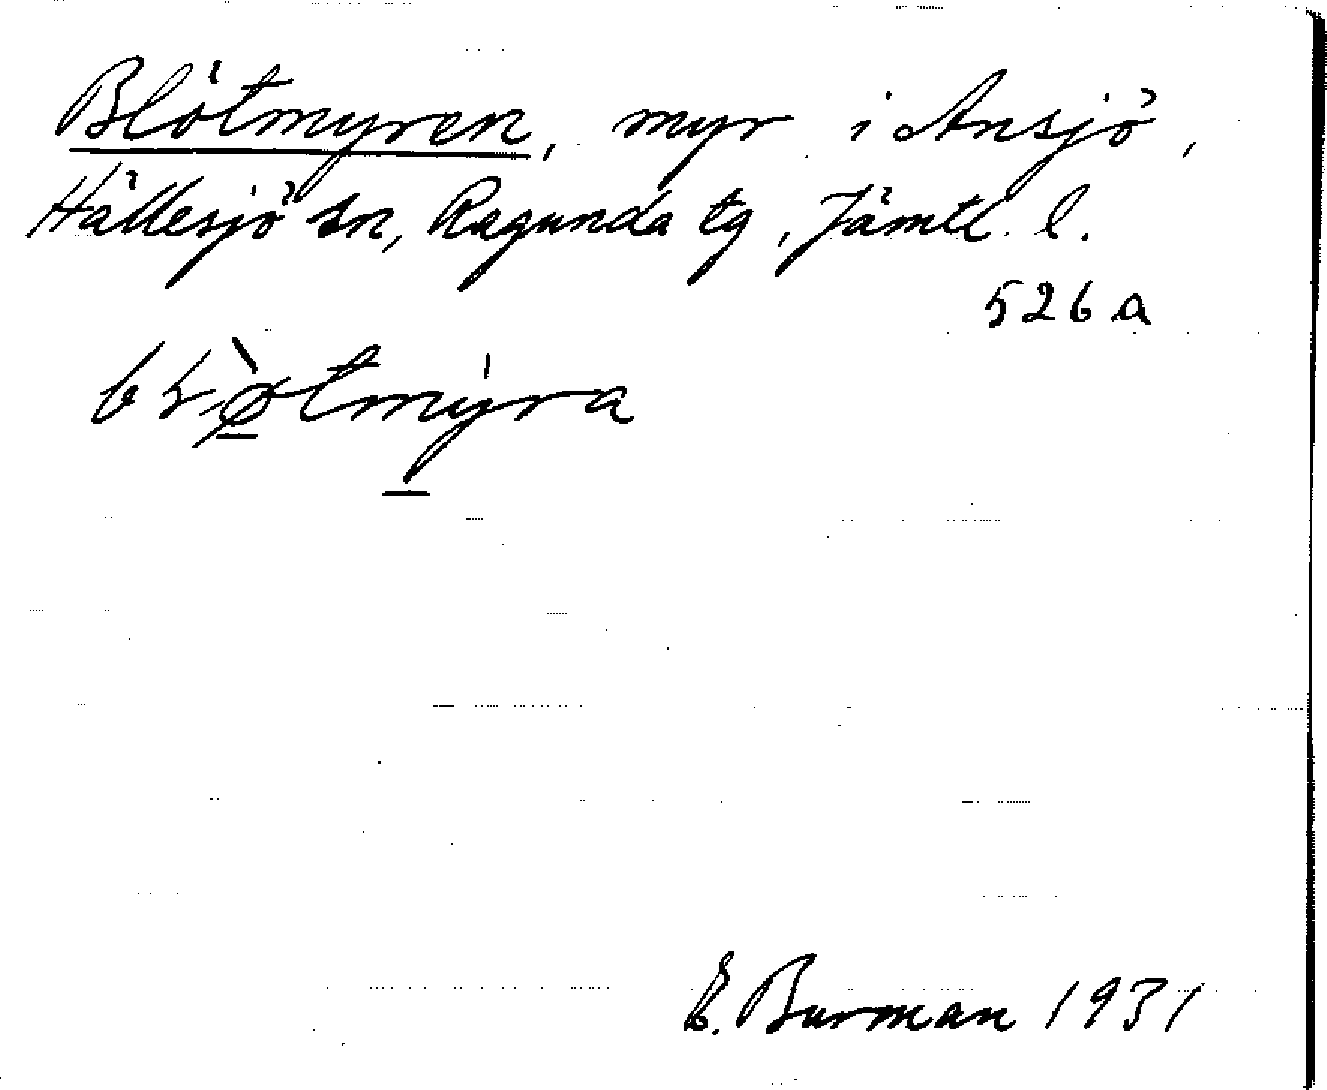 Blötmyren, myr i Ansjö,
Hällesjö sn, Ragunda tg, Jämtl. l.
526 a
E. Burman 1931